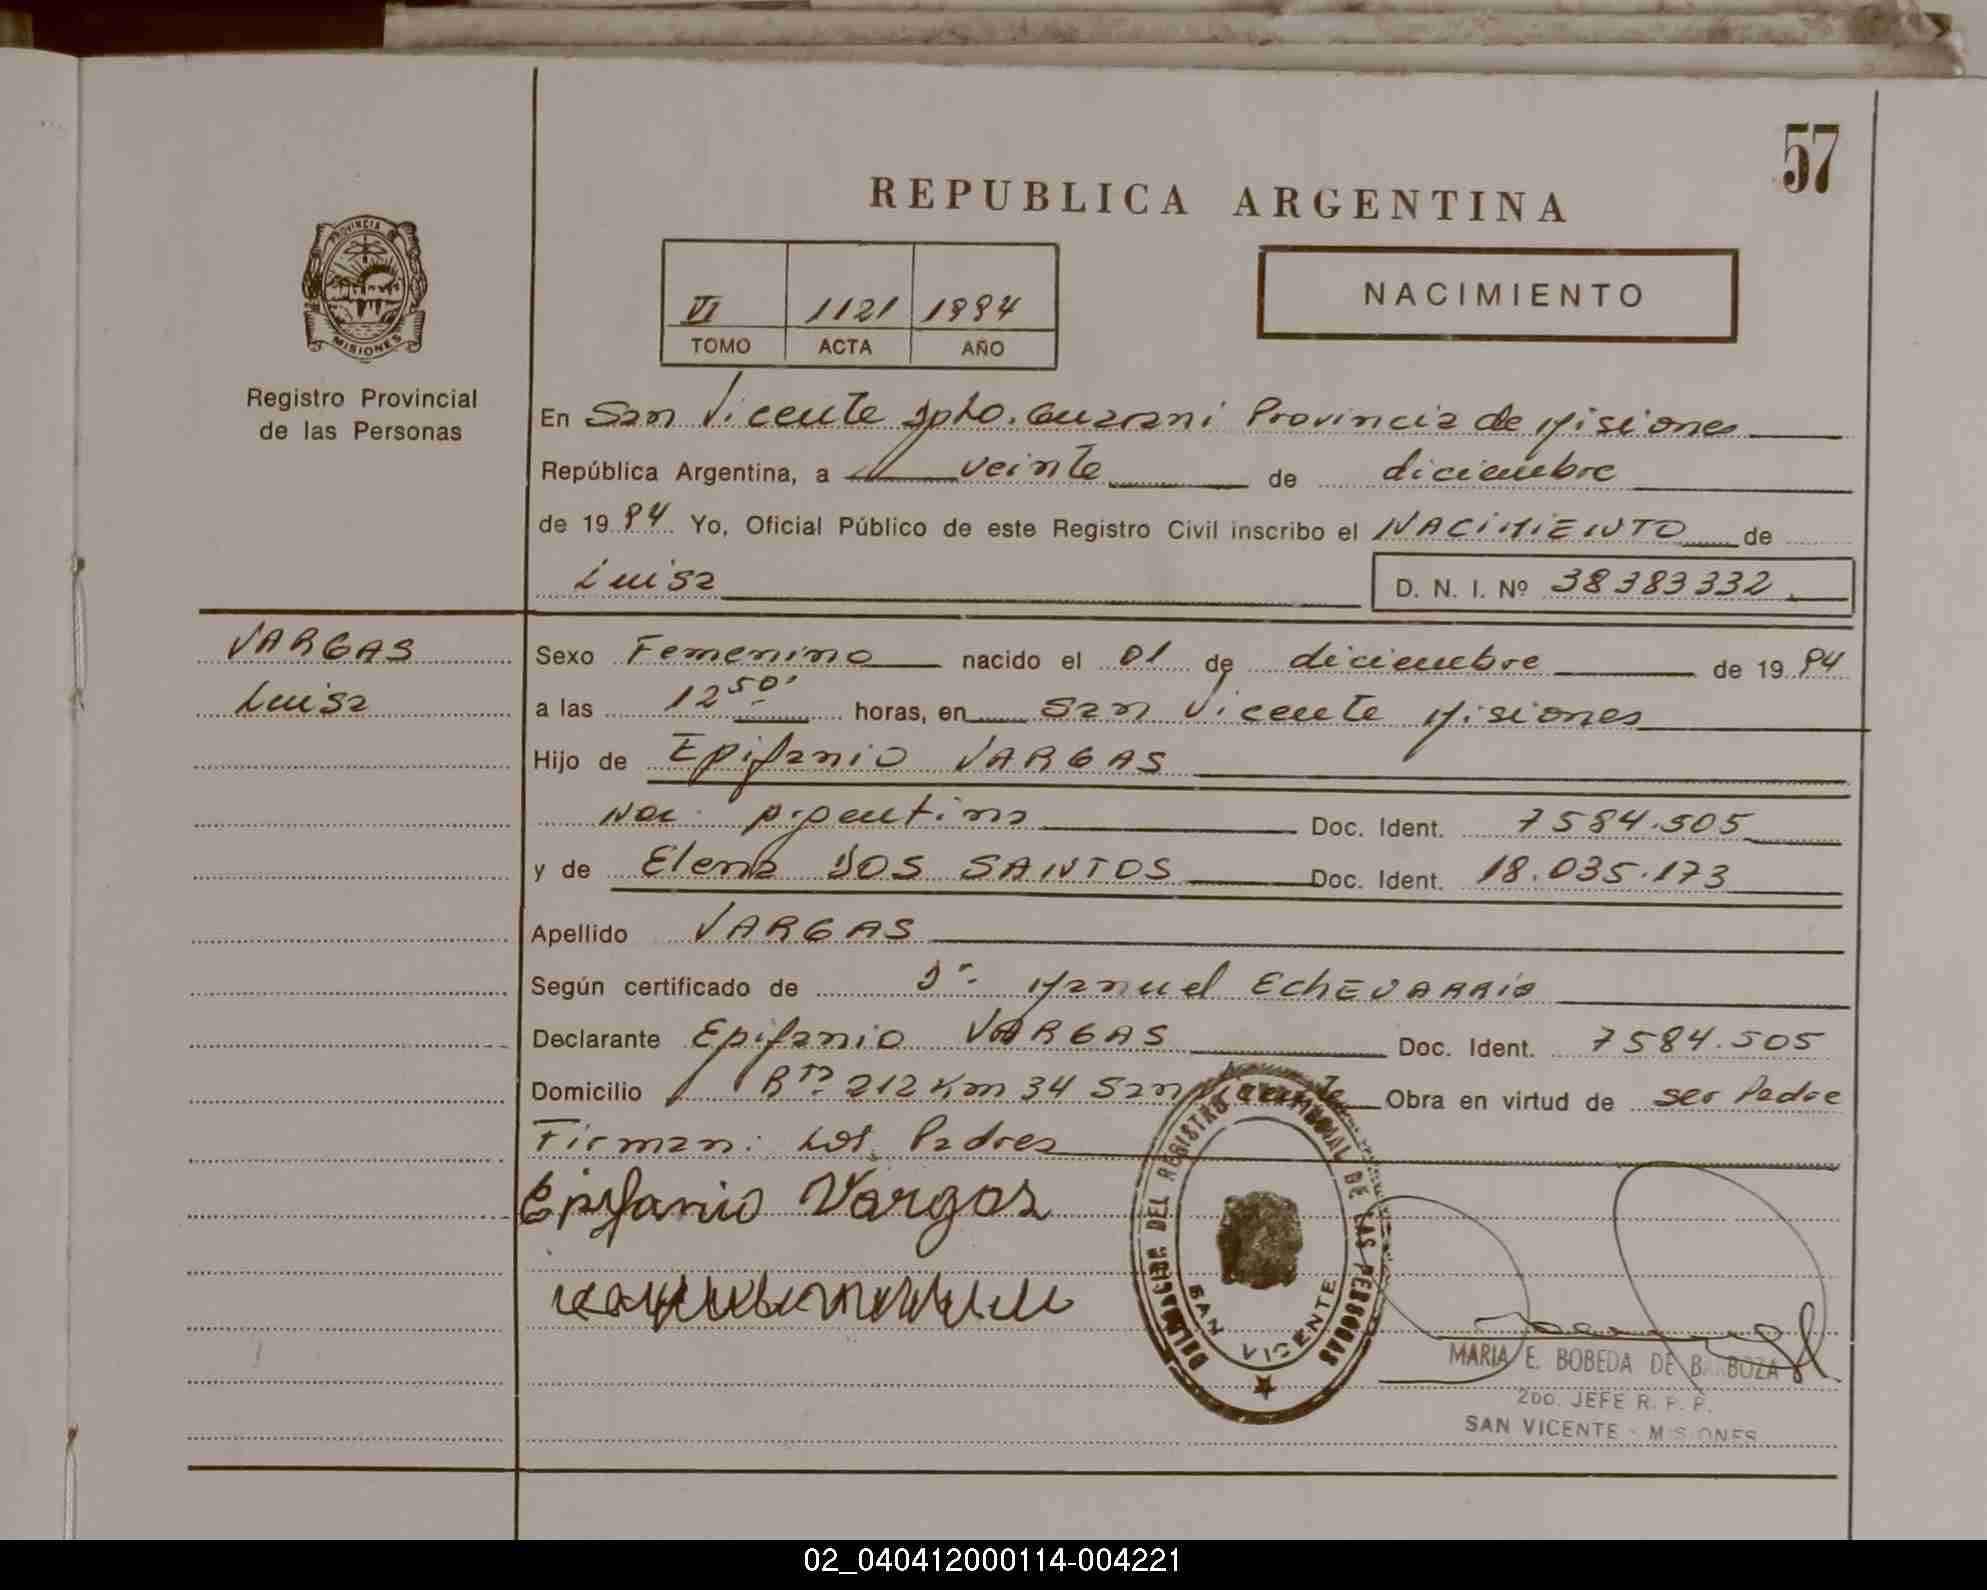 57
REPUBLICA ARGENTINA
PROVINCIA DE
MISIONES
Registro Provincial
de las Personas
VI 1121 1994
TOMO ACTA AÑO
NACIMIENTO
En San Vicente Dpto. Guarani Provincia de Misiones
República Argentina, a veinte de diciembre
de 1994 Yo, Oficial Público de este Registro Civil inscribo el NACIMIENTO de
Luisa D. N. I. Nº 38383332
VARGAS
Luisa
Sexo Femenino nacido el 01 de diciembre de 1994
a las 12 50' horas, en San Vicente Misiones
Hijo de Epifanio VARGAS
Nac. Argentina Doc. Ident. 7584.505
y de Elena DOS SANTOS Doc. Ident. 18.035.173
Apellido VARGAS
Según certificado de Dr. Manuel EChEVARRIA
Declarante Epifanio VARGAS Doc. Ident. 7584.505
Domicilio Rta. 212 Km 34 San Vicente Obra en virtud de ser Padre
Firman: Los Padres
Epifanio Vargas
DELEGACION DEL REGISTRO PROVINCIAL DE LAS PERSONAS
SAN VICENTE
MARIA E. BOBEDA DE BARBOZA
2DO. JEFE R. P. P.
SAN VICENTE - MISIONES
02_040412000114-004221